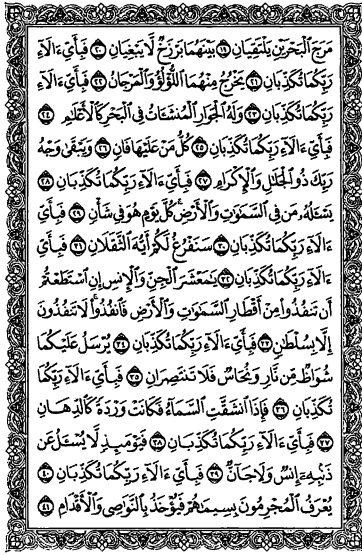 مَرَجَ ٱلْبَحْرَيْنِ يَلْتَقِيَانِ ١٩ بَيْنَهُمَا بَرْزَخٌ لَّا يَبْغِيَانِ ٢٠ فَبِأَيِّ ءَالَآءِ
رَبِّكُمَا تُكَذِّبَانِ ٢١ يَخْرُجُ مِنْهُمَا ٱللُّؤْلُؤُ وَٱلْمَرْجَانُ ٢٢ فَبِأَيِّ ءَالَآءِ
رَبِّكُمَا تُكَذِّبَانِ ٢٣ وَلَهُ ٱلْجَوَارِ ٱلْمُنشَـَٔاتُ فِى ٱلْبَحْرِ كَٱلْأَعْلَـٰمِ ٢٤
فَبِأَيِّ ءَالَآءِ رَبِّكُمَا تُكَذِّبَانِ ٢٥ كُلُّ مَنْ عَلَيْهَا فَانٍ ٢٦ وَيَبْقَىٰ وَجْهُ
رَبِّكَ ذُو ٱلْجَلَـٰلِ وَٱلْإِكْرَامِ ٢٧ فَبِأَيِّ ءَالَآءِ رَبِّكُمَا تُكَذِّبَانِ ٢٨
يَسْـَٔلُهُۥ مَن فِى ٱلسَّمَـٰوَٰتِ وَٱلْأَرْضِ ۚ كُلَّ يَوْمٍ هُوَ فِى شَأْنٍ ٢٩ فَبِأَيِّ
ءَالَآءِ رَبِّكُمَا تُكَذِّبَانِ ٣٠ سَنَفْرُغُ لَكُمْ أَيُّهَ ٱلثَّقَلَانِ ٣١ فَبِأَيِّ
ءَالَآءِ رَبِّكُمَا تُكَذِّبَانِ ٣٢ يَـٰمَعْشَرَ ٱلْجِنِّ وَٱلْإِنسِ إِنِ ٱسْتَطَعْتُمْ
أَن تَنفُذُوا۟ مِنْ أَقْطَارِ ٱلسَّمَـٰوَٰتِ وَٱلْأَرْضِ فَٱنفُذُوا۟ ۚ لَا تَنفُذُونَ
إِلَّا بِسُلْطَـٰنٍ ٣٣ فَبِأَيِّ ءَالَآءِ رَبِّكُمَا تُكَذِّبَانِ ٣٤ يُرْسَلُ عَلَيْكُمَا
شُوَاظٌ مِّن نَّارٍ وَنُحَاسٌ فَلَا تَنتَصِرَانِ ٣٥ فَبِأَيِّ ءَالَآءِ رَبِّكُمَا
تُكَذِّبَانِ ٣٦ فَإِذَا ٱنشَقَّتِ ٱلسَّمَآءُ فَكَانَتْ وَرْدَةً كَٱلدِّهَانِ
٣٧ فَبِأَيِّ ءَالَآءِ رَبِّكُمَا تُكَذِّبَانِ ٣٨ فَيَوْمَئِذٍ لَّا يُسْـَٔلُ عَن
ذَنۢبِهِۦٓ إِنسٌ وَلَا جَآنٌّ ٣٩ فَبِأَيِّ ءَالَآءِ رَبِّكُمَا تُكَذِّبَانِ ٤٠
يُعْرَفُ ٱلْمُجْرِمُونَ بِسِيمَـٰهُمْ فَيُؤْخَذُ بِٱلنَّوَٰصِى وَٱلْأَقْدَامِ ٤١